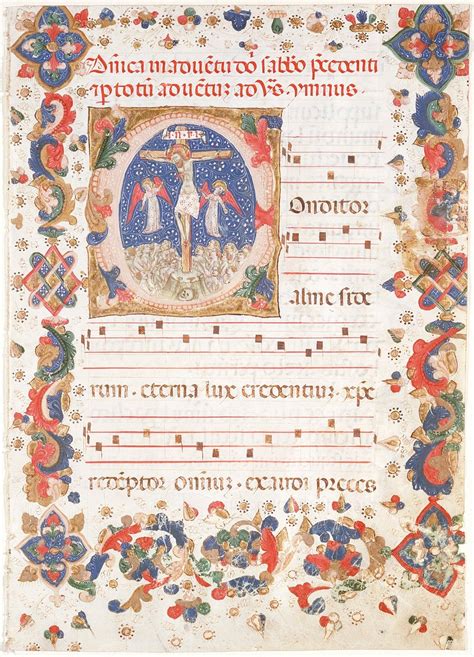 Dn̄ica in aduentu dn̄i sabbo p̄cedenti
⁊ p totū aduentū ad v̄s ymnus
Conditor
alme side
rum · eterna lux credentiū · xp̄e
redēptor omniū · exaudi preces